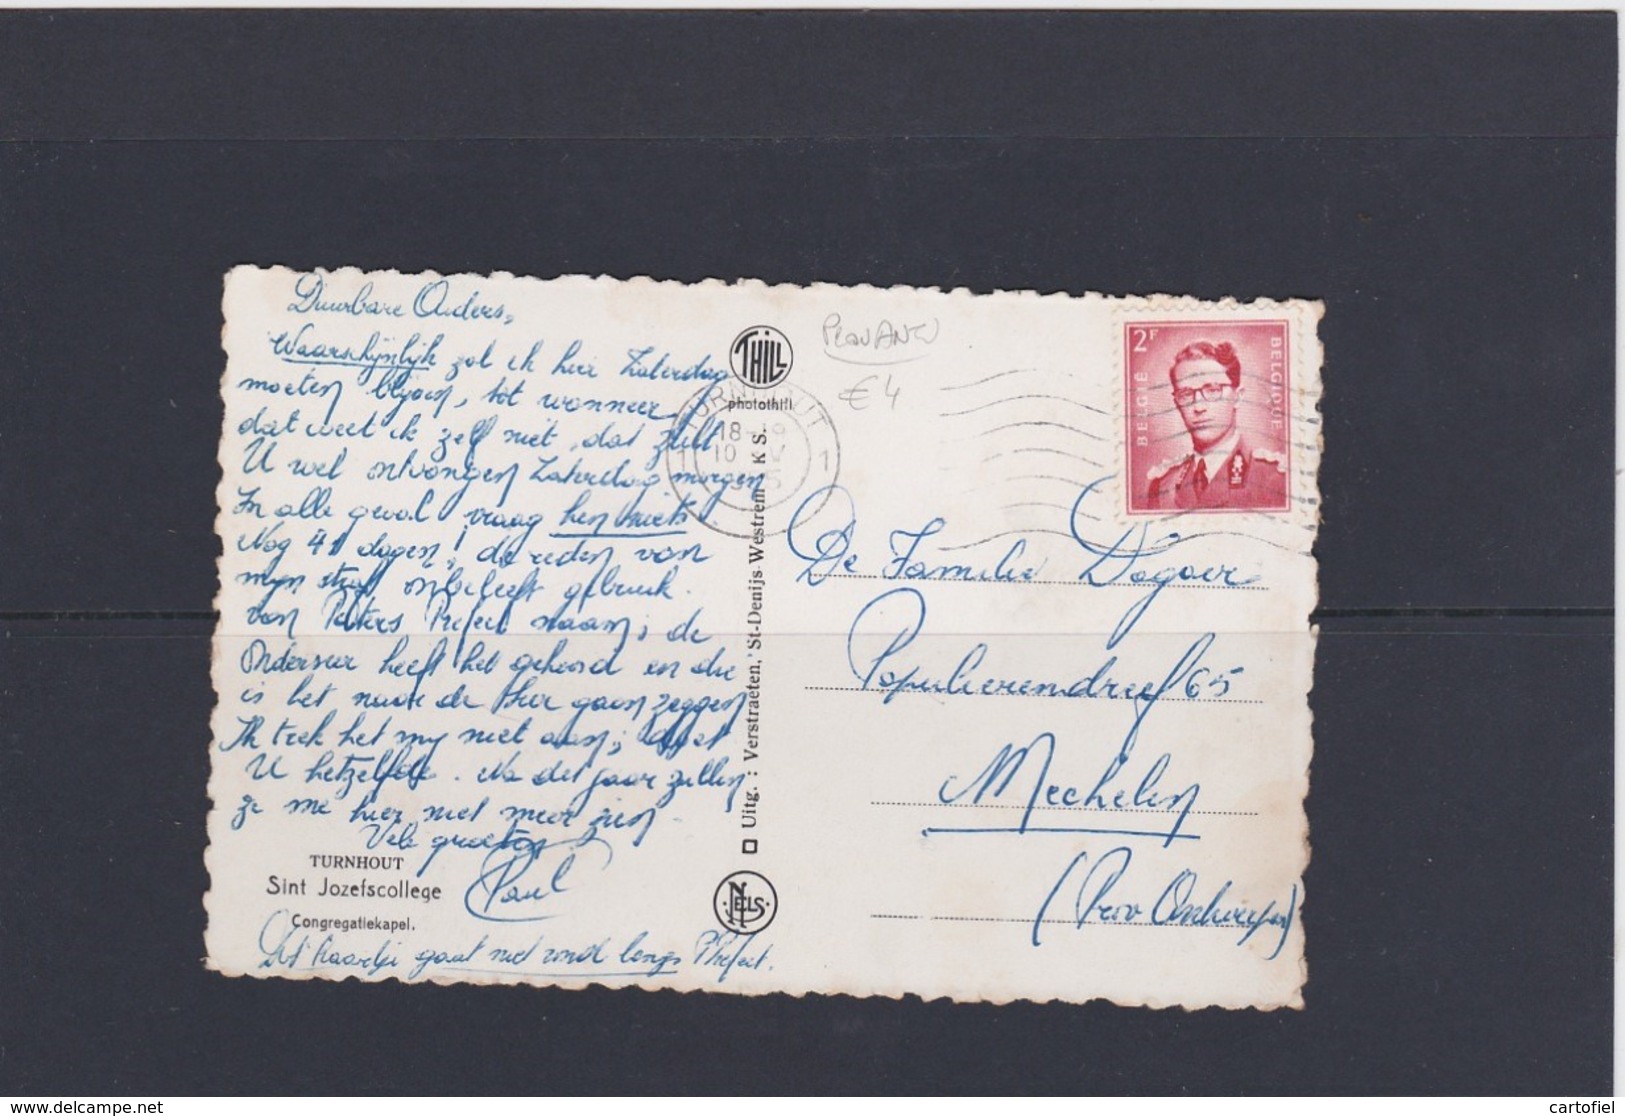 Duurbare Ouders,
Waarschijnlijk zal ik hier Zaterdag
moeten blijven, tot wanneer
dat weet ik zelf niet, dat zult
U wel ontvangen Zaterdag morgen
In alle geval vraag hen niets
Nog 41 dagen! de reden van
mijn straf onbeleeft gebruik
van Paters Prefect naam; de
heeft het gehoord en die
is het naar de gaan zeggen
Ik trek het mij niet aan; doet
U hetzelfde. Na dit jaar zullen
ze me hier niet meer zien.
Vele groeten
Paul
TURNHOUT
Sint Jozefscollege
Congregatiekapel.
Dit kaartje gaat niet rond langs P. Prefect.
THILL
photothill
Uitg. : Verstraeten, St-Denijs-Westrem K S.
NELS
TURNHOUT
18-19
10
1 1
€ 4
2F
BELGIË
BELGIQUE
De Familie Dogaer
Populierendreef 65
Mechelen
(Prov Antwerpen)
cartofiel